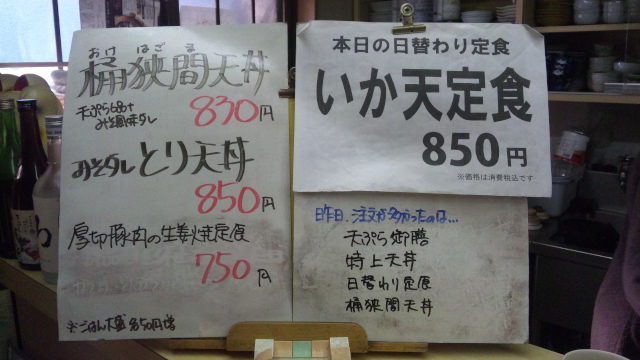 おけ はざま
桶狭間天丼
830円
みそダレとり天丼
850円
厚切豚肉の生姜焼定食
750円
※ごはん大盛各50円増
本日の日替わり定食
いか天定食
850円
※価格は消費税込です
昨日、注文が多かったのは…
天ぷら御膳
特上天丼
日替わり定食
桶狭間天丼